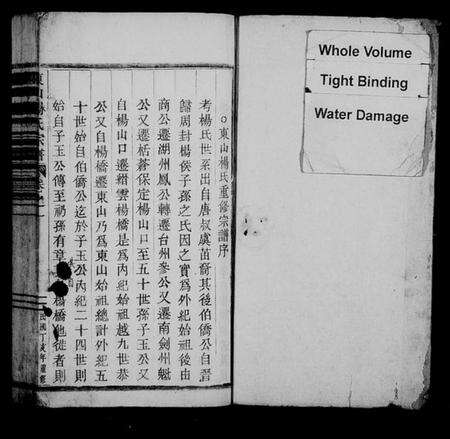 東山楊氏重修宗譜序
考楊氏世系出自唐叔虞苗裔其後伯僑公自晉
歸周封楊侯子孫之氏因之實為外紀始祖後由
商公遷湖州鳳公轉遷台州參公又遷南劍州魁
公又遷括蒼保定楊山口至五十世孫子玉公又
自楊山口遷縉雲楊橋是為內紀始祖越九世恭
公又自楊橋遷東山乃為東山始祖總計外紀五
十世始自伯僑公迄於子玉公內紀二十四世則
始自子玉公傳至礽孫有章楊橋也徙者則
Whole Volume
Tight Binding
Water Damage